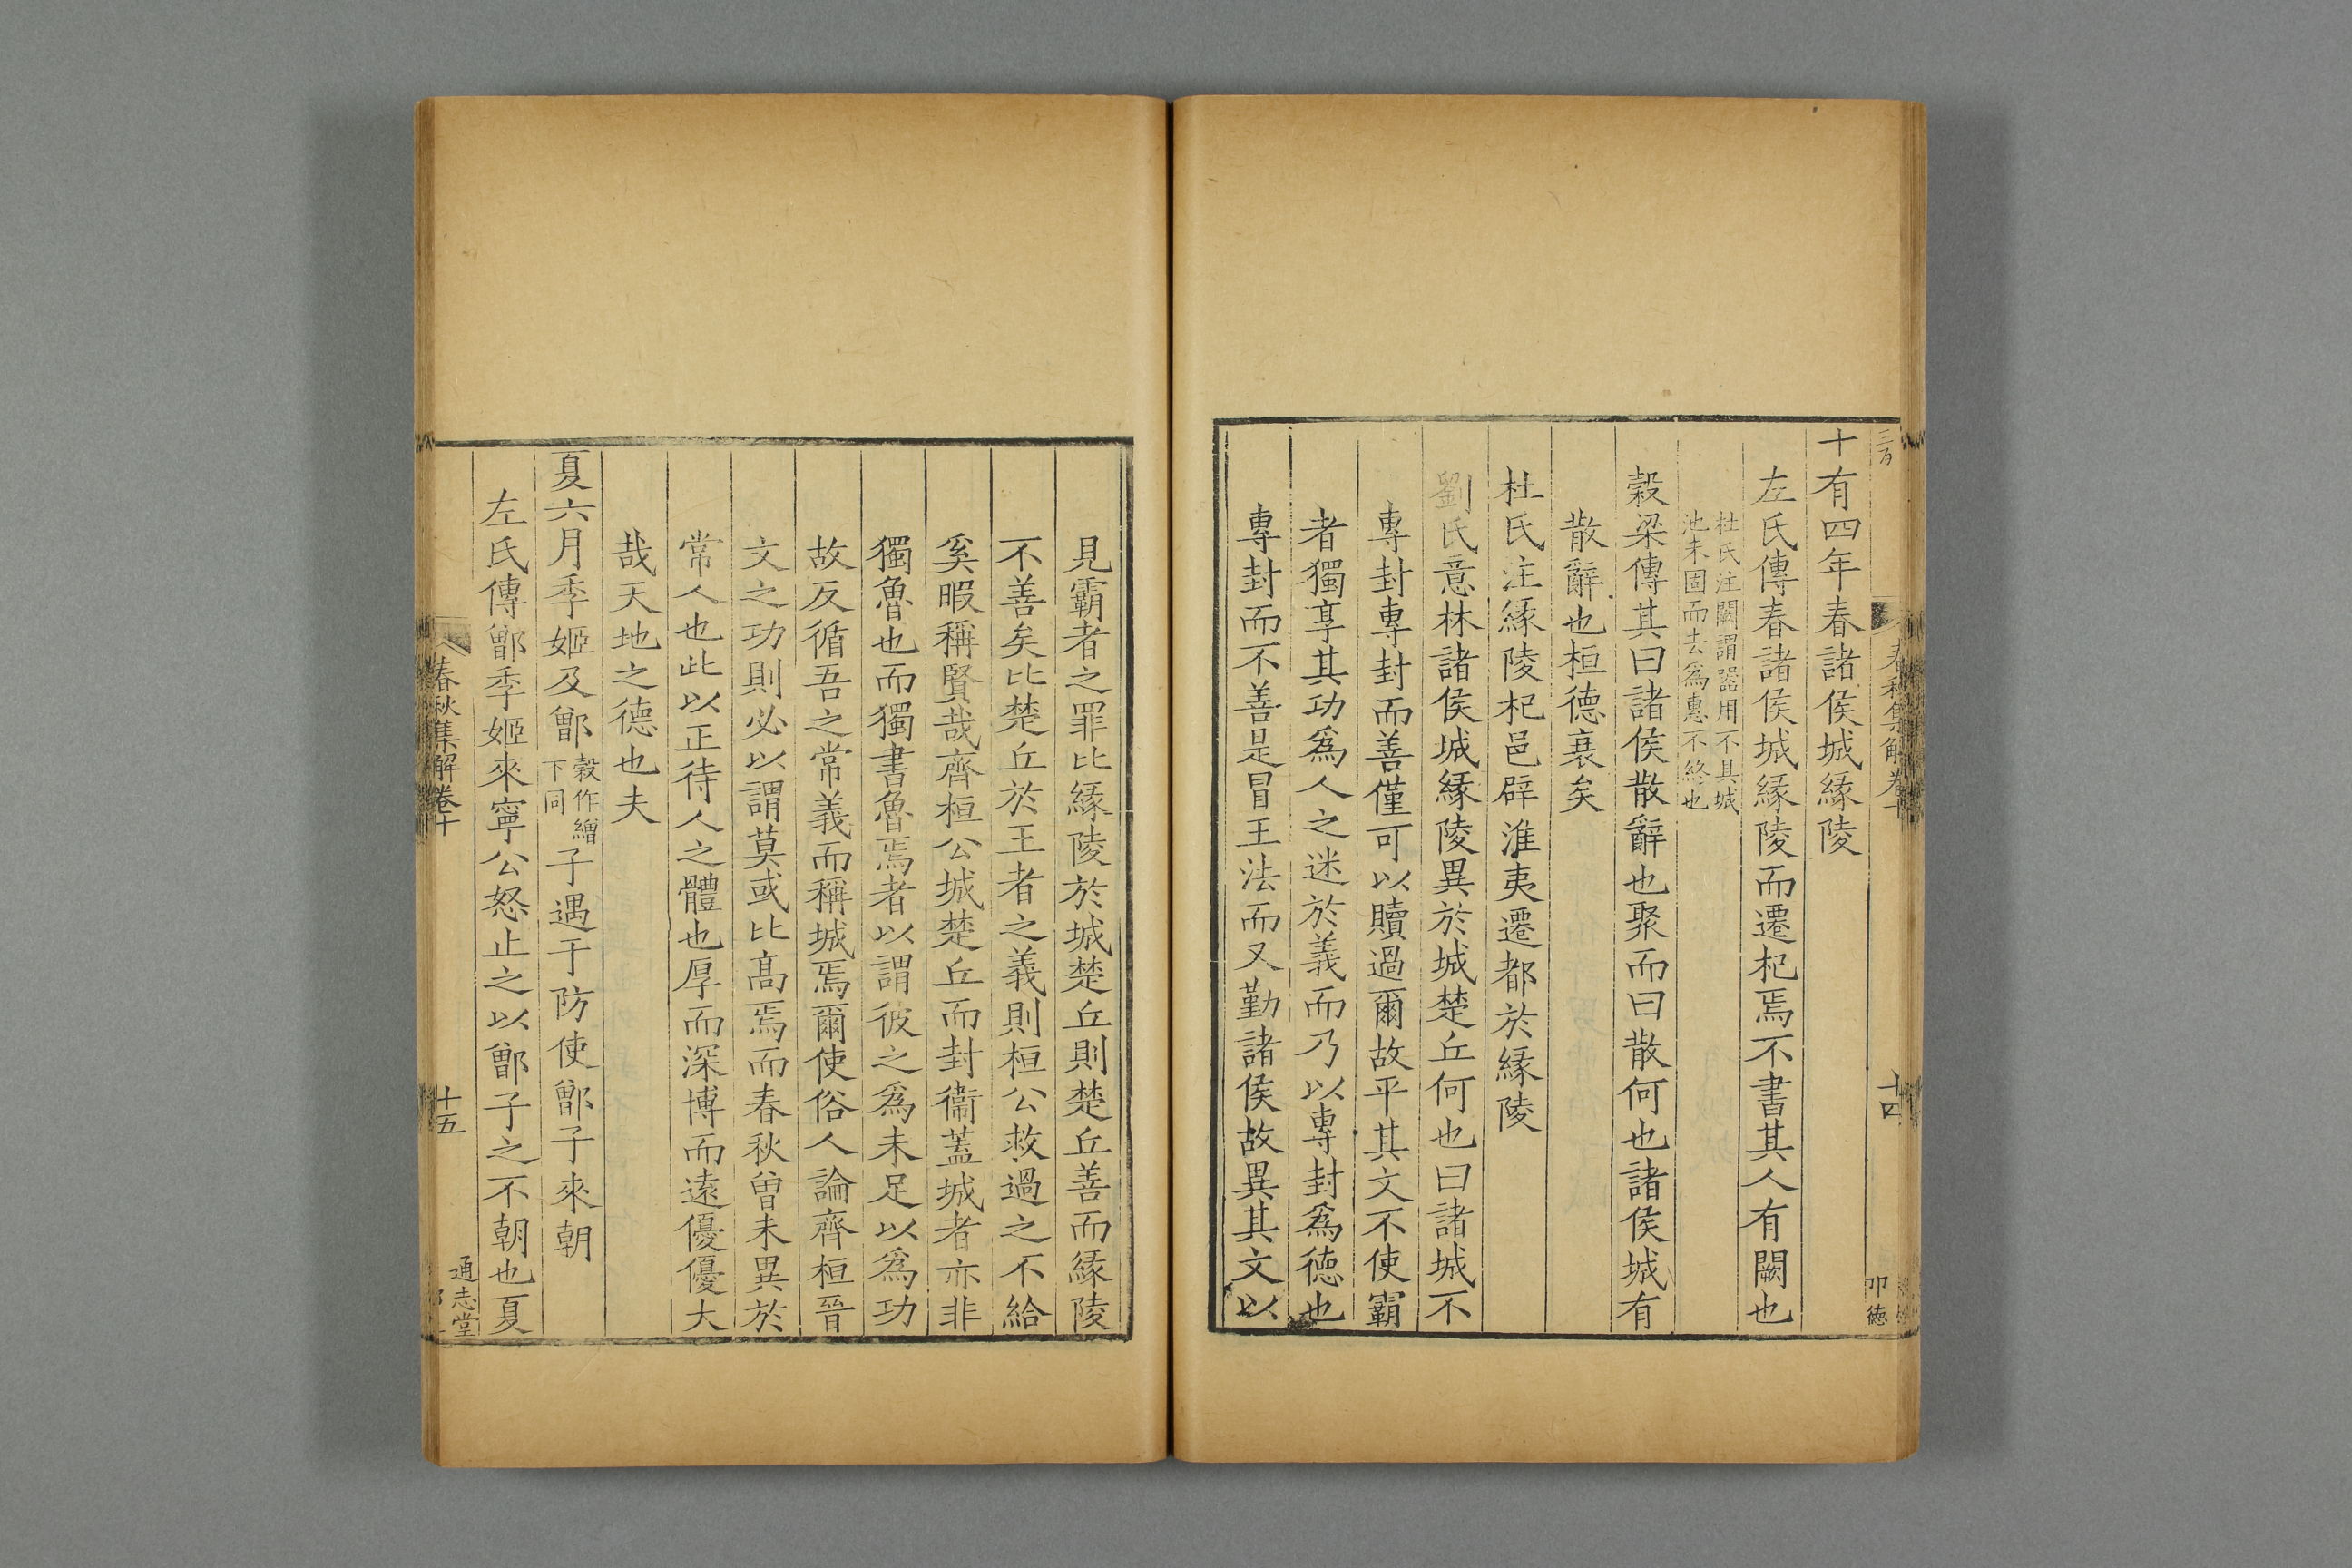 春秋集解卷十
十四
十有四年春諸侯城緣陵
左氏傳春諸侯城緣陵而遷杞焉不書其人有闕也
杜氏注闕謂器用不具城
池未固而去為惠不終也
穀梁傳其曰諸侯散辭也聚而曰散何也諸侯城有
散辭也桓德衰矣
杜氏注緣陵杞邑辟淮夷遷都於緣陵
劉氏意林諸侯城緣陵異於城楚丘何也曰諸城不
專封專封而善僅可以贖過爾故平其文不使霸
者獨享其功爲人之迷於義而乃以專封爲德也
專封而不善是冒王法而又勤諸侯故異其文以
見霸者之罪比緣陵於城楚丘則楚丘善而緣陵
不善矣比楚丘於王者之義則桓公救過之不給
奚暇稱賢哉齊桓公城楚丘而封衞蓋城者亦非
獨魯也而獨書魯焉者以謂彼之爲未足以爲功
故反循吾之常義而稱城焉爾使俗人論齊桓晉
文之功則必以謂莫或比髙焉而春秋曾未異於
常人也此以正待人之體也厚而深博而遠優優大
哉天地之德也夫
夏六月季姬及鄫穀作繒下同子遇于防使鄫子來朝
左氏傳鄫季姬來寧公怒止之以鄫子之不朝也夏
春秋集解卷十
十五
通志堂